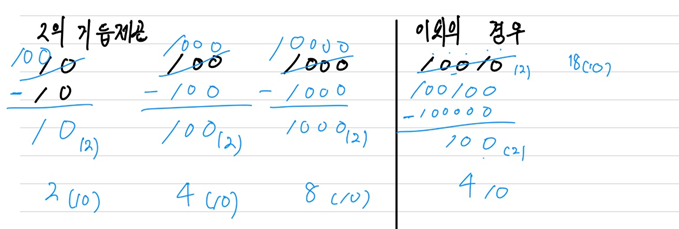 2의 거듭제곱
100 10
- 10
10(2)
2(10)
1000
100
- 100
100(2)
4(10)
10000
1000
- 1000
1000(2)
8(10)
이외의 경우
10010(2) 18(10)
100100
- 100000
100(2)
4 10